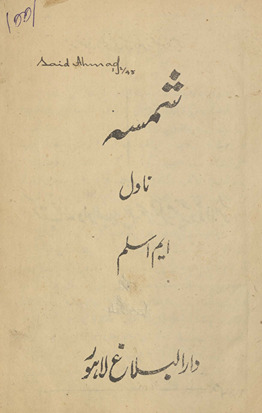 Said Ahmad
شمسہ
ناول
ایم اسلم
دارالبلاغ لاہور